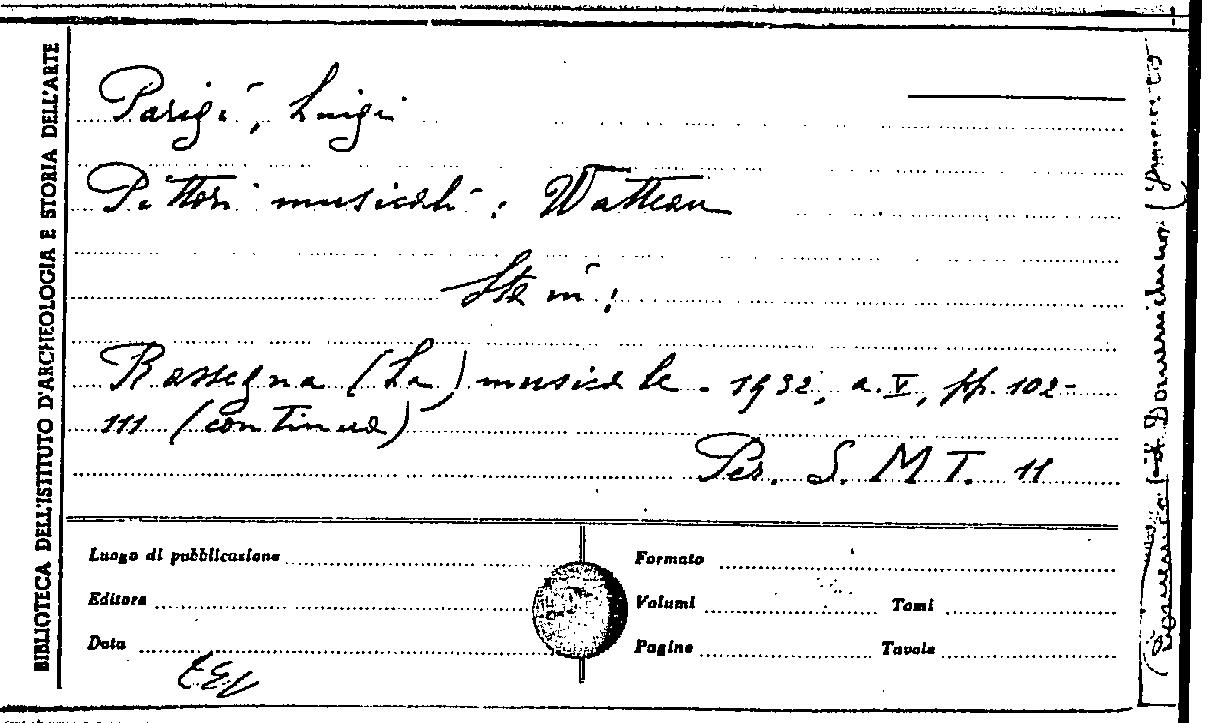 BIBLIOTECA DELL'ISTITUTO D'ARCHEOLOGIA E STORIA DELL'ARTE
Parigi, Luigi
Pittori musicali: Watteau
Sta in:
Rassegna (La) musicale. 1932, a. V, pp. 102-
111 (continua)
Per. S. M T. 11
Luogo di pubblicazione
Formato
Editore
Volumi
Tomi
Data
Pagine
Tavole